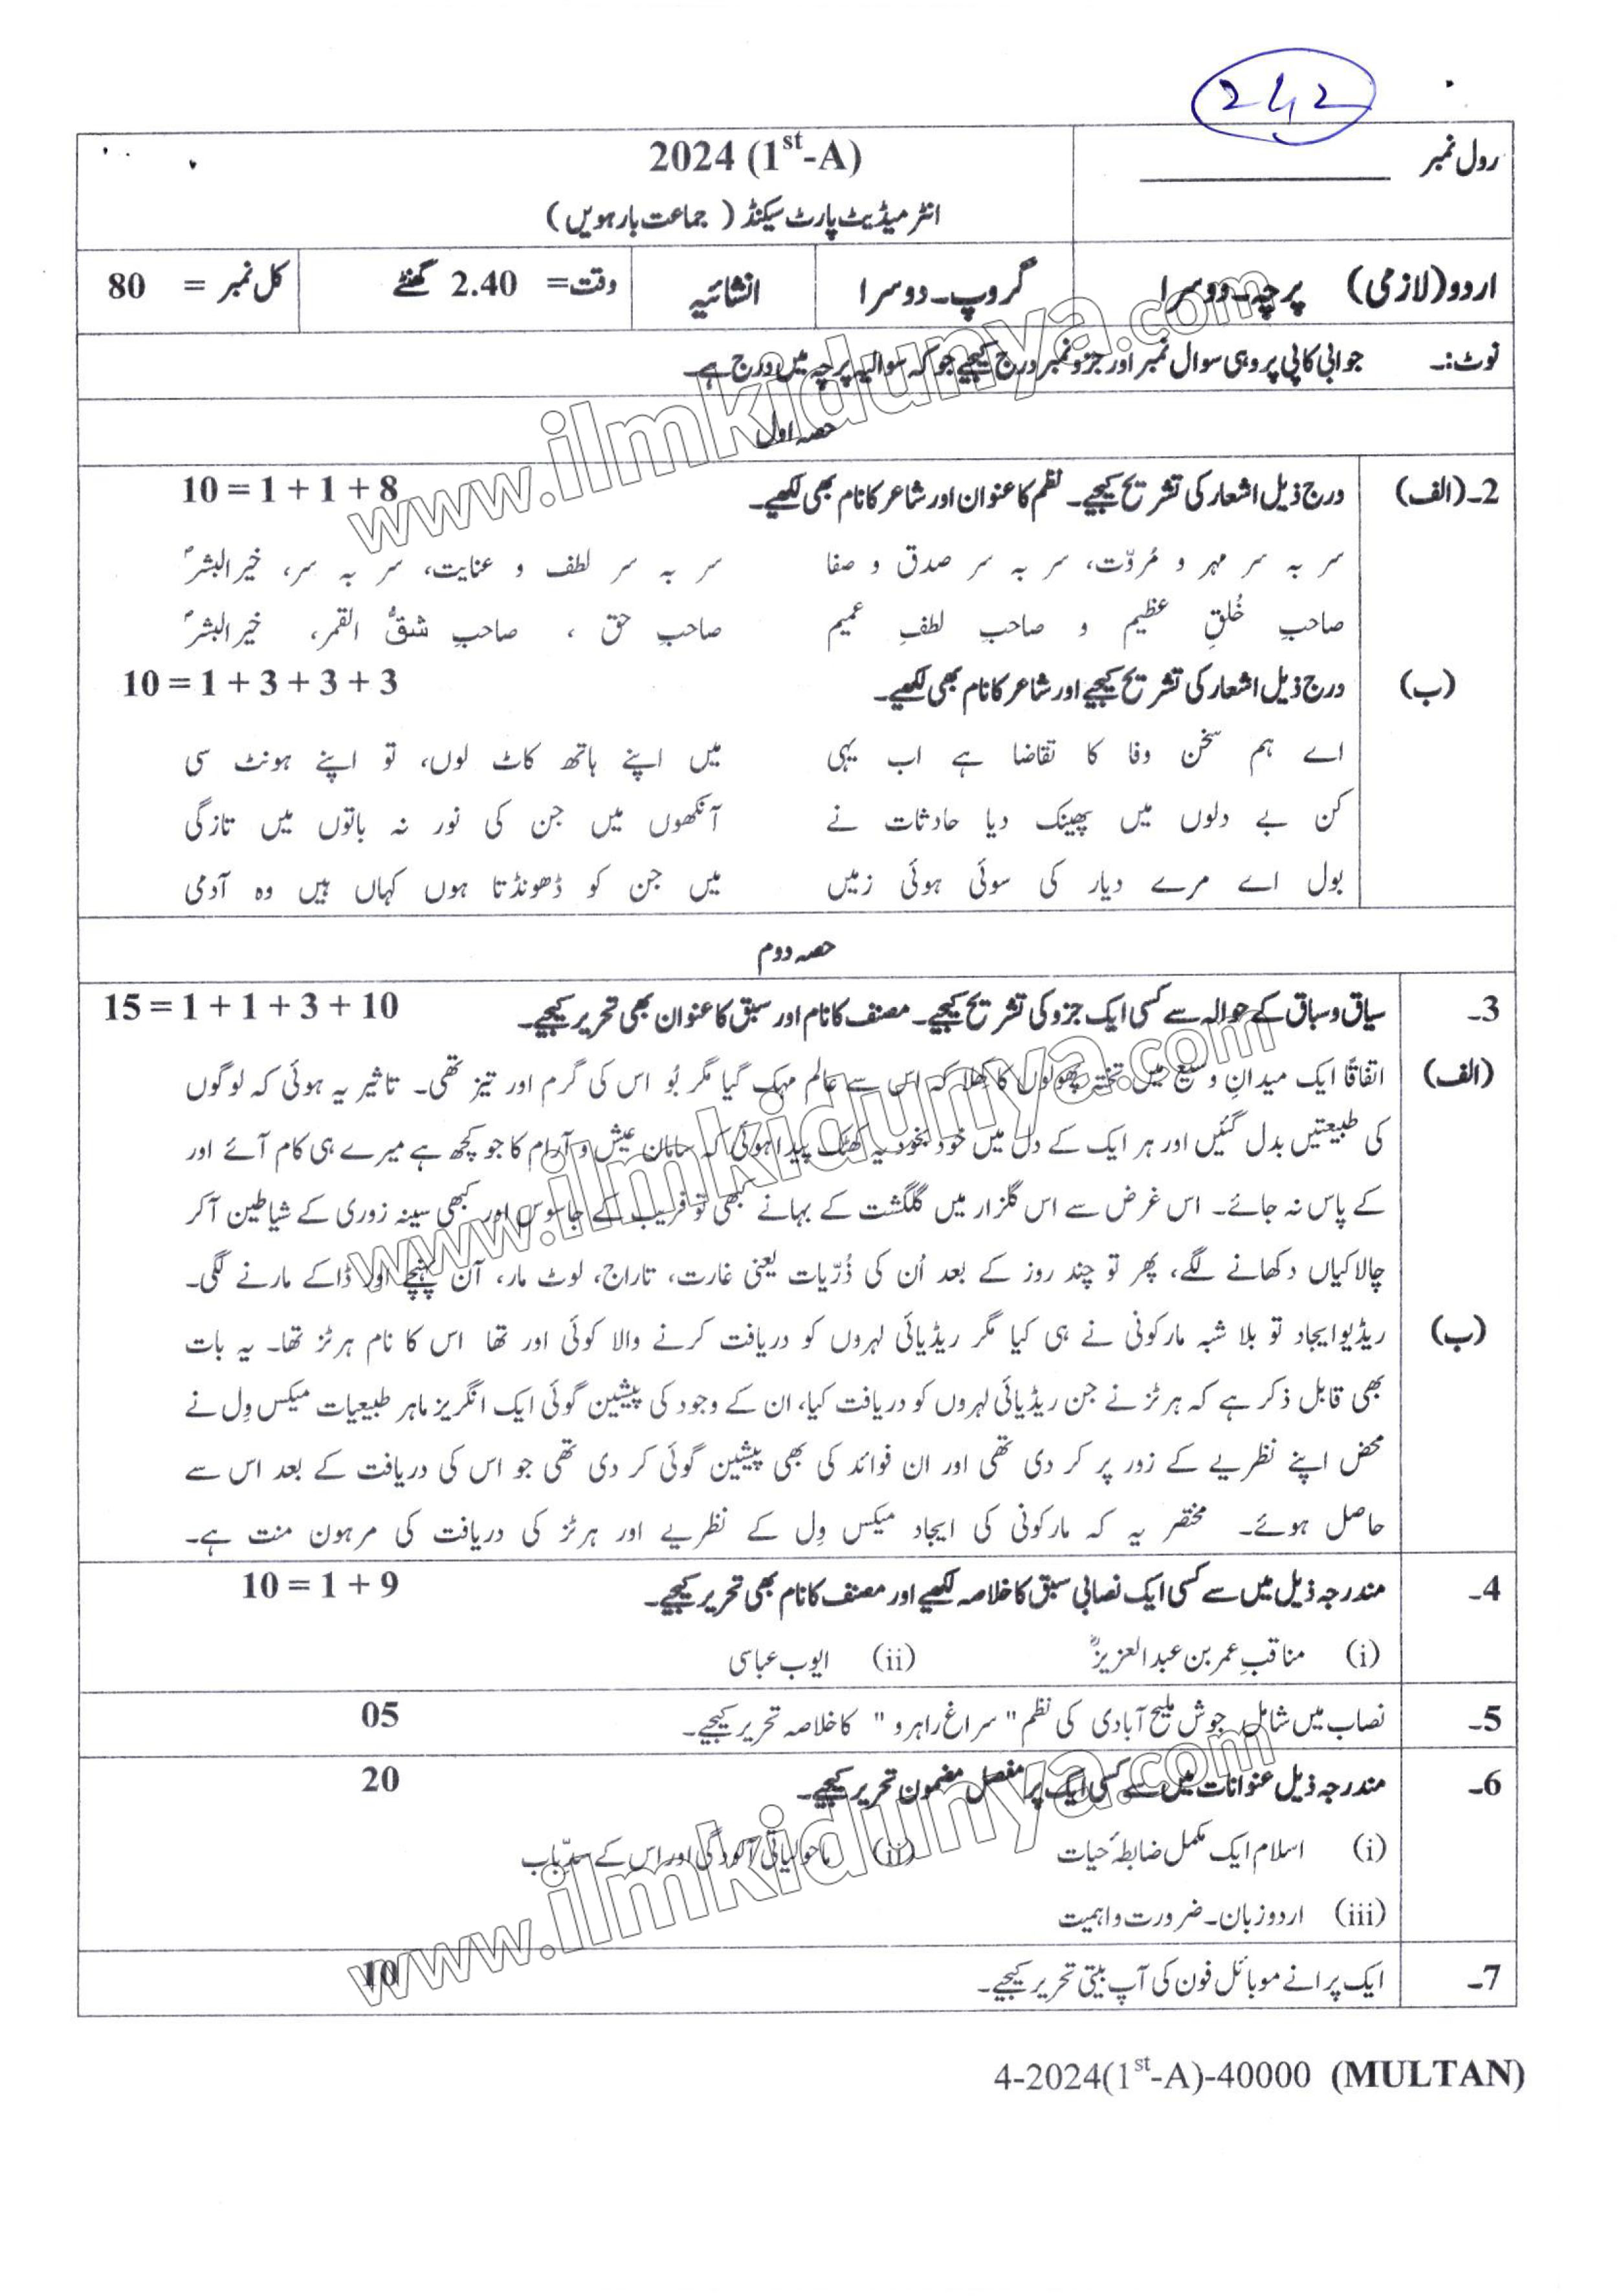 242
رول نمبر
2024 (1st-A)
انٹرمیڈیٹ پارٹ سیکنڈ ( جماعت بارھویں )
اردو (لازمی) پرچہ۔ دوسرا گروپ۔ دوسرا انشائیہ وقت= 2.40 گھنٹے کل نمبر = 80
نوٹ:۔ جوابی کاپی پر وہی سوال نمبر اور جزو نمبر درج کیجیے جو کہ سوالیہ پرچہ میں درج ہے۔
حصہ اول
2۔(الف) درج ذیل اشعار کی تشریح کیجیے۔ نظم کا عنوان اور شاعر کا نام بھی لکھیے۔ 10 = 1 + 1 + 8
سر بہ سر مہر و مُروّت، سر بہ سر صدق و صفا سر بہ سر لطف و عنایت، سر بہ سر، خیرالبشرؐ
صاحبِ خُلقِ عظیم و صاحبِ لطفِ عمیم صاحبِ حق ، صاحبِ شقُّ القمر، خیرالبشرؐ
(ب) درج ذیل اشعار کی تشریح کیجیے اور شاعر کا نام بھی لکھیے۔ 10 = 1 + 3 + 3 + 3
اے ہم سخن وفا کا تقاضا ہے اب یہی میں اپنے ہاتھ کاٹ لوں، تو اپنے ہونٹ سی
کن بے دلوں میں پھینک دیا حادثات نے آنکھوں میں جن کی نور نہ باتوں میں تازگی
بول اے مرے دیار کی سوئی ہوئی زمیں میں جن کو ڈھونڈتا ہوں کہاں ہیں وہ آدمی
حصہ دوم
3۔ سیاق و سباق کے حوالہ سے کسی ایک جزو کی تشریح کیجیے۔ مصنف کا نام اور سبق کا عنوان بھی تحریر کیجیے۔ 15 = 1 + 1 + 3 + 10
(الف) اتفاقًا ایک میدانِ وسیع میں تختہ پھولوں کا کھلا کہ اس سے عالم مہک گیا مگر بُو اس کی گرم اور تیز تھی۔ تاثیر یہ ہوئی کہ لوگوں
کی طبیعتیں بدل گئیں اور ہر ایک کے دل میں خود بخود یہ کھٹک پیدا ہوئی کہ سامان عیش و آرام کا جو کچھ ہے میرے ہی کام آئے اور
کے پاس نہ جائے۔ اس غرض سے اس گلزار میں گلگشت کے بہانے کبھی تو فریب کے جاسوس اور کبھی سینہ زوری کے شیاطین آ کر
چالاکیاں دکھانے لگے، پھر تو چند روز کے بعد اُن کی ذُرّیات یعنی غارت، تاراج، لوٹ مار، آن پہنچے اور ڈاکے مارنے لگی۔
(ب) ریڈیو ایجاد تو بلا شبہ مارکونی نے ہی کیا مگر ریڈیائی لہروں کو دریافت کرنے والا کوئی اور تھا اس کا نام ہرٹز تھا۔ یہ بات
بھی قابل ذکر ہے کہ ہرٹز نے جن ریڈیائی لہروں کو دریافت کیا، ان کے وجود کی پیشین گوئی ایک انگریز ماہر طبیعیات میکس وِل نے
محض اپنے نظریے کے زور پر کر دی تھی اور ان فوائد کی بھی پیشین گوئی کر دی تھی جو اس کی دریافت کے بعد اس سے
حاصل ہوئے۔ مختصر یہ کہ مارکونی کی ایجاد میکس وِل کے نظریے اور ہرٹز کی دریافت کی مرہون منت ہے۔
4۔ مندرجہ ذیل میں سے کسی ایک نصابی سبق کا خلاصہ لکھیے اور مصنف کا نام بھی تحریر کیجیے۔ 10 = 1 + 9
(i) مناقبِ عمر بن عبدالعزیزؒ (ii) ایوب عباسی
5۔ نصاب میں شامل جوش ملیح آبادی کی نظم " سراغ راہرو " کا خلاصہ تحریر کیجیے۔ 05
6۔ مندرجہ ذیل عنوانات میں سے کسی ایک پر مفصل مضمون تحریر کیجیے۔ 20
(i) اسلام ایک مکمل ضابطۂ حیات (ii) ماحولیاتی آلودگی اور اس کے سدِّباب
(iii) اردو زبان۔ ضرورت و اہمیت
7۔ ایک پرانے موبائل فون کی آپ بیتی تحریر کیجیے۔ 10
4-2024(1st-A)-40000 (MULTAN)
www.ilmkidunya.com
www.ilmkidunya.com
www.ilmkidunya.com